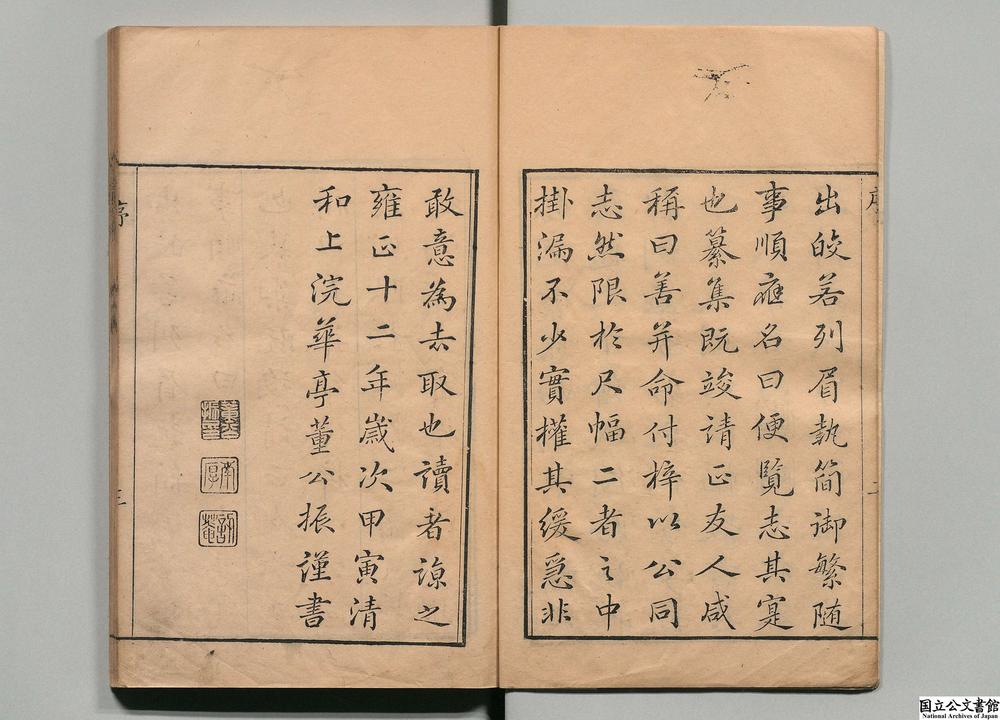 出皎若列眉執簡御繁随
事順應名曰便覽志其寔
也纂集既竣請正友人咸
稱曰善并命付梓以公同
志然限於尺幅二者之中
掛漏不少實權其緩急非
敢意為去取也讀者諒之
雍正十二年歲次甲寅清
和上浣華亭董公振謹書
序
三
国立公文書館
National Archives of Japan